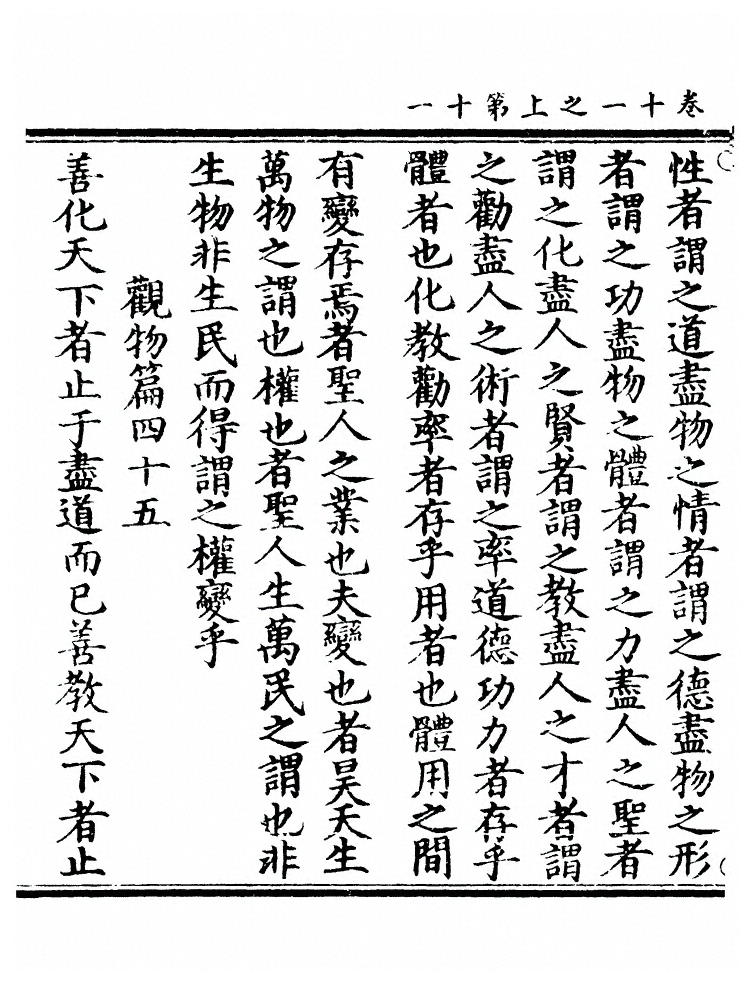 卷十一之上第十一
性者謂之道盡物之情者謂之德盡物之形
者謂之功盡物之體者謂之力盡人之聖者
謂之化盡人之賢者謂之教盡人之才者謂
之勸盡人之術者謂之率道德功力者存乎
體者也化教勸率者存乎用者也體用之間
有變存焉者聖人之業也夫變也者昊天生
萬物之謂也權也者聖人生萬民之謂也非
生物非生民而得謂之權變乎
觀物篇四十五
善化天下者止于盡道而已善教天下者止